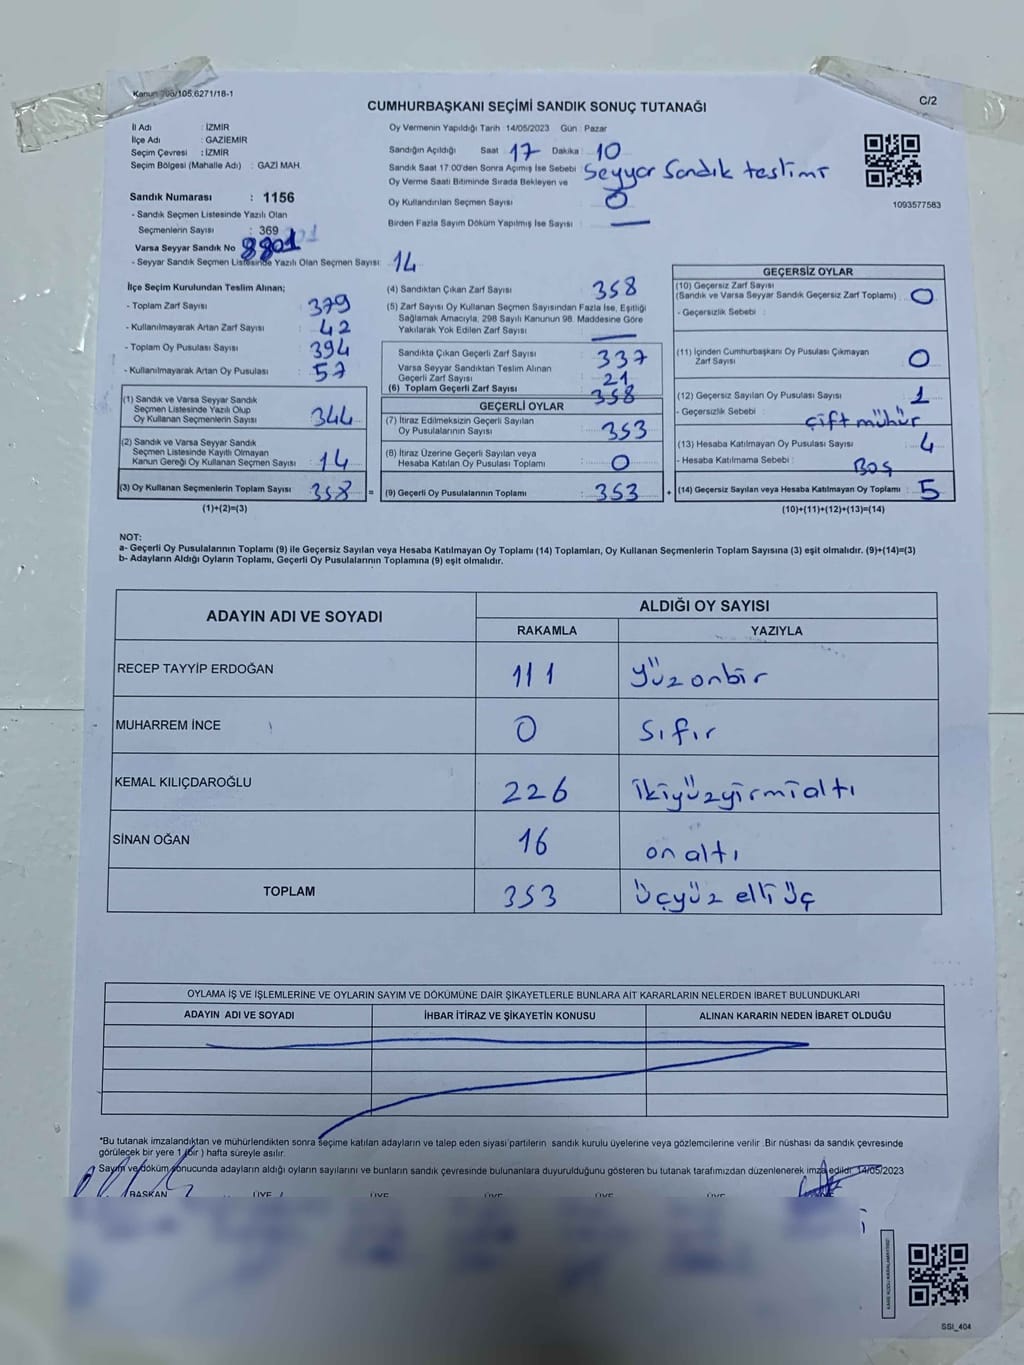 Kanun 298/105,6271/18-1
C/2
CUMHURBAŞKANI SEÇİMİ SANDIK SONUÇ TUTANAĞI
İl Adı : İZMİR
İlçe Adı : GAZİEMİR
Seçim Çevresi : İZMİR
Seçim Bölgesi (Mahalle Adı) : GAZİ MAH.
Oy Vermenin Yapıldığı Tarih 14/05/2023 Gün : Pazar
Sandığın Açıldığı Saat 17 Dakika : 10
Sandık Saat 17.00'den Sonra Açımış İse Sebebi : Seyyar Sandık teslimi
Oy Verme Saati Bitiminde Sırada Bekleyen ve
Oy Kullandırılan Seçmen Sayısı : 0
Birden Fazla Sayım Döküm Yapılmış İse Sayısı : —
1093577583
Sandık Numarası : 1156
- Sandık Seçmen Listesinde Yazılı Olan
Seçmenlerin Sayısı : 369
Varsa Seyyar Sandık No 8801
- Seyyar Sandık Seçmen Listesinde Yazılı Olan Seçmen Sayısı: 14
İlçe Seçim Kurulundan Teslim Alınan;
- Toplam Zarf Sayısı : 379
- Kullanılmayarak Artan Zarf Sayısı : 42
- Toplam Oy Pusulası Sayısı : 394
- Kullanılmayarak Artan Oy Pusulası : 57
(1) Sandık ve Varsa Seyyar Sandık
Seçmen Listesinde Yazılı Olup
Oy Kullanan Seçmenlerin Sayısı : 344
(2) Sandık ve Varsa Seyyar Sandık
Seçmen Listesinde Kayıtlı Olmayan
Kanun Gereği Oy Kullanan Seçmen Sayısı : 14
(3) Oy Kullanan Seçmenlerin Toplam Sayısı : 358 =
(1)+(2)=(3)
(4) Sandıktan Çıkan Zarf Sayısı : 358
(5) Zarf Sayısı Oy Kullanan Seçmen Sayısından Fazla İse, Eşitliği
Sağlamak Amacıyla, 298 Sayılı Kanunun 98. Maddesine Göre
Yakılarak Yok Edilen Zarf Sayısı : —
Sandıkta Çıkan Geçerli Zarf Sayısı : 337
Varsa Seyyar Sandıktan Teslim Alınan
Geçerli Zarf Sayısı : 21
(6) Toplam Geçerli Zarf Sayısı : 358
GEÇERLİ OYLAR
(7) İtiraz Edilmeksizin Geçerli Sayılan
Oy Pusulalarının Sayısı : 353
(8) İtiraz Üzerine Geçerli Sayılan veya
Hesaba Katılan Oy Pusulası Toplamı : 0
(9) Geçerli Oy Pusulalarının Toplamı : 353 +
GEÇERSİZ OYLAR
(10) Geçersiz Zarf Sayısı
(Sandık ve Varsa Seyyar Sandık Geçersiz Zarf Toplamı) : 0
- Geçersizlik Sebebi :
(11) İçinden Cumhurbaşkanı Oy Pusulası Çıkmayan
Zarf Sayısı : 0
(12) Geçersiz Sayılan Oy Pusulası Sayısı : 1
- Geçersizlik Sebebi : çift mühür
(13) Hesaba Katılmayan Oy Pusulası Sayısı : 4
- Hesaba Katılmama Sebebi : Boş
(14) Geçersiz Sayılan veya Hesaba Katılmayan Oy Toplamı : 5
(10)+(11)+(12)+(13)=(14)
NOT:
a- Geçerli Oy Pusulalarının Toplamı (9) ile Geçersiz Sayılan veya Hesaba Katılmayan Oy Toplamı (14) Toplamları, Oy Kullanan Seçmenlerin Toplam Sayısına (3) eşit olmalıdır. (9)+(14)=(3)
b- Adayların Aldığı Oyların Toplamı, Geçerli Oy Pusulalarının Toplamına (9) eşit olmalıdır.
ADAYIN ADI VE SOYADI ALDIĞI OY SAYISI
RAKAMLA YAZIYLA
RECEP TAYYİP ERDOĞAN 111 yüzonbir
MUHARREM İNCE 0 Sıfır
KEMAL KILIÇDAROĞLU 226 ikiyüzyirmialtı
SİNAN OĞAN 16 on altı
TOPLAM 353 Üçyüz elli üç
OYLAMA İŞ VE İŞLEMLERİNE VE OYLARIN SAYIM VE DÖKÜMÜNE DAİR ŞİKAYETLERLE BUNLARA AİT KARARLARIN NELERDEN İBARET BULUNDUKLARI
ADAYIN ADI VE SOYADI İHBAR İTİRAZ VE ŞİKAYETİN KONUSU ALINAN KARARIN NEDEN İBARET OLDUĞU
*Bu tutanak imzalandıktan ve mühürlendikten sonra seçime katılan adayların ve talep eden siyasi partilerin sandık kurulu üyelerine veya gözlemcilerine verilir .Bir nüshası da sandık çevresinde
görülecek bir yere 1 (bir ) hafta süreyle asılır.
Sayım ve döküm sonucunda adayların aldığı oyların sayılarını ve bunların sandık çevresinde bulunanlara duyurulduğunu gösteren bu tutanak tarafımızdan düzenlenerek imza edildi. 14/05/2023
BAŞKAN ÜYE ÜYE ÜYE ÜYE ÜYE
SSI_404